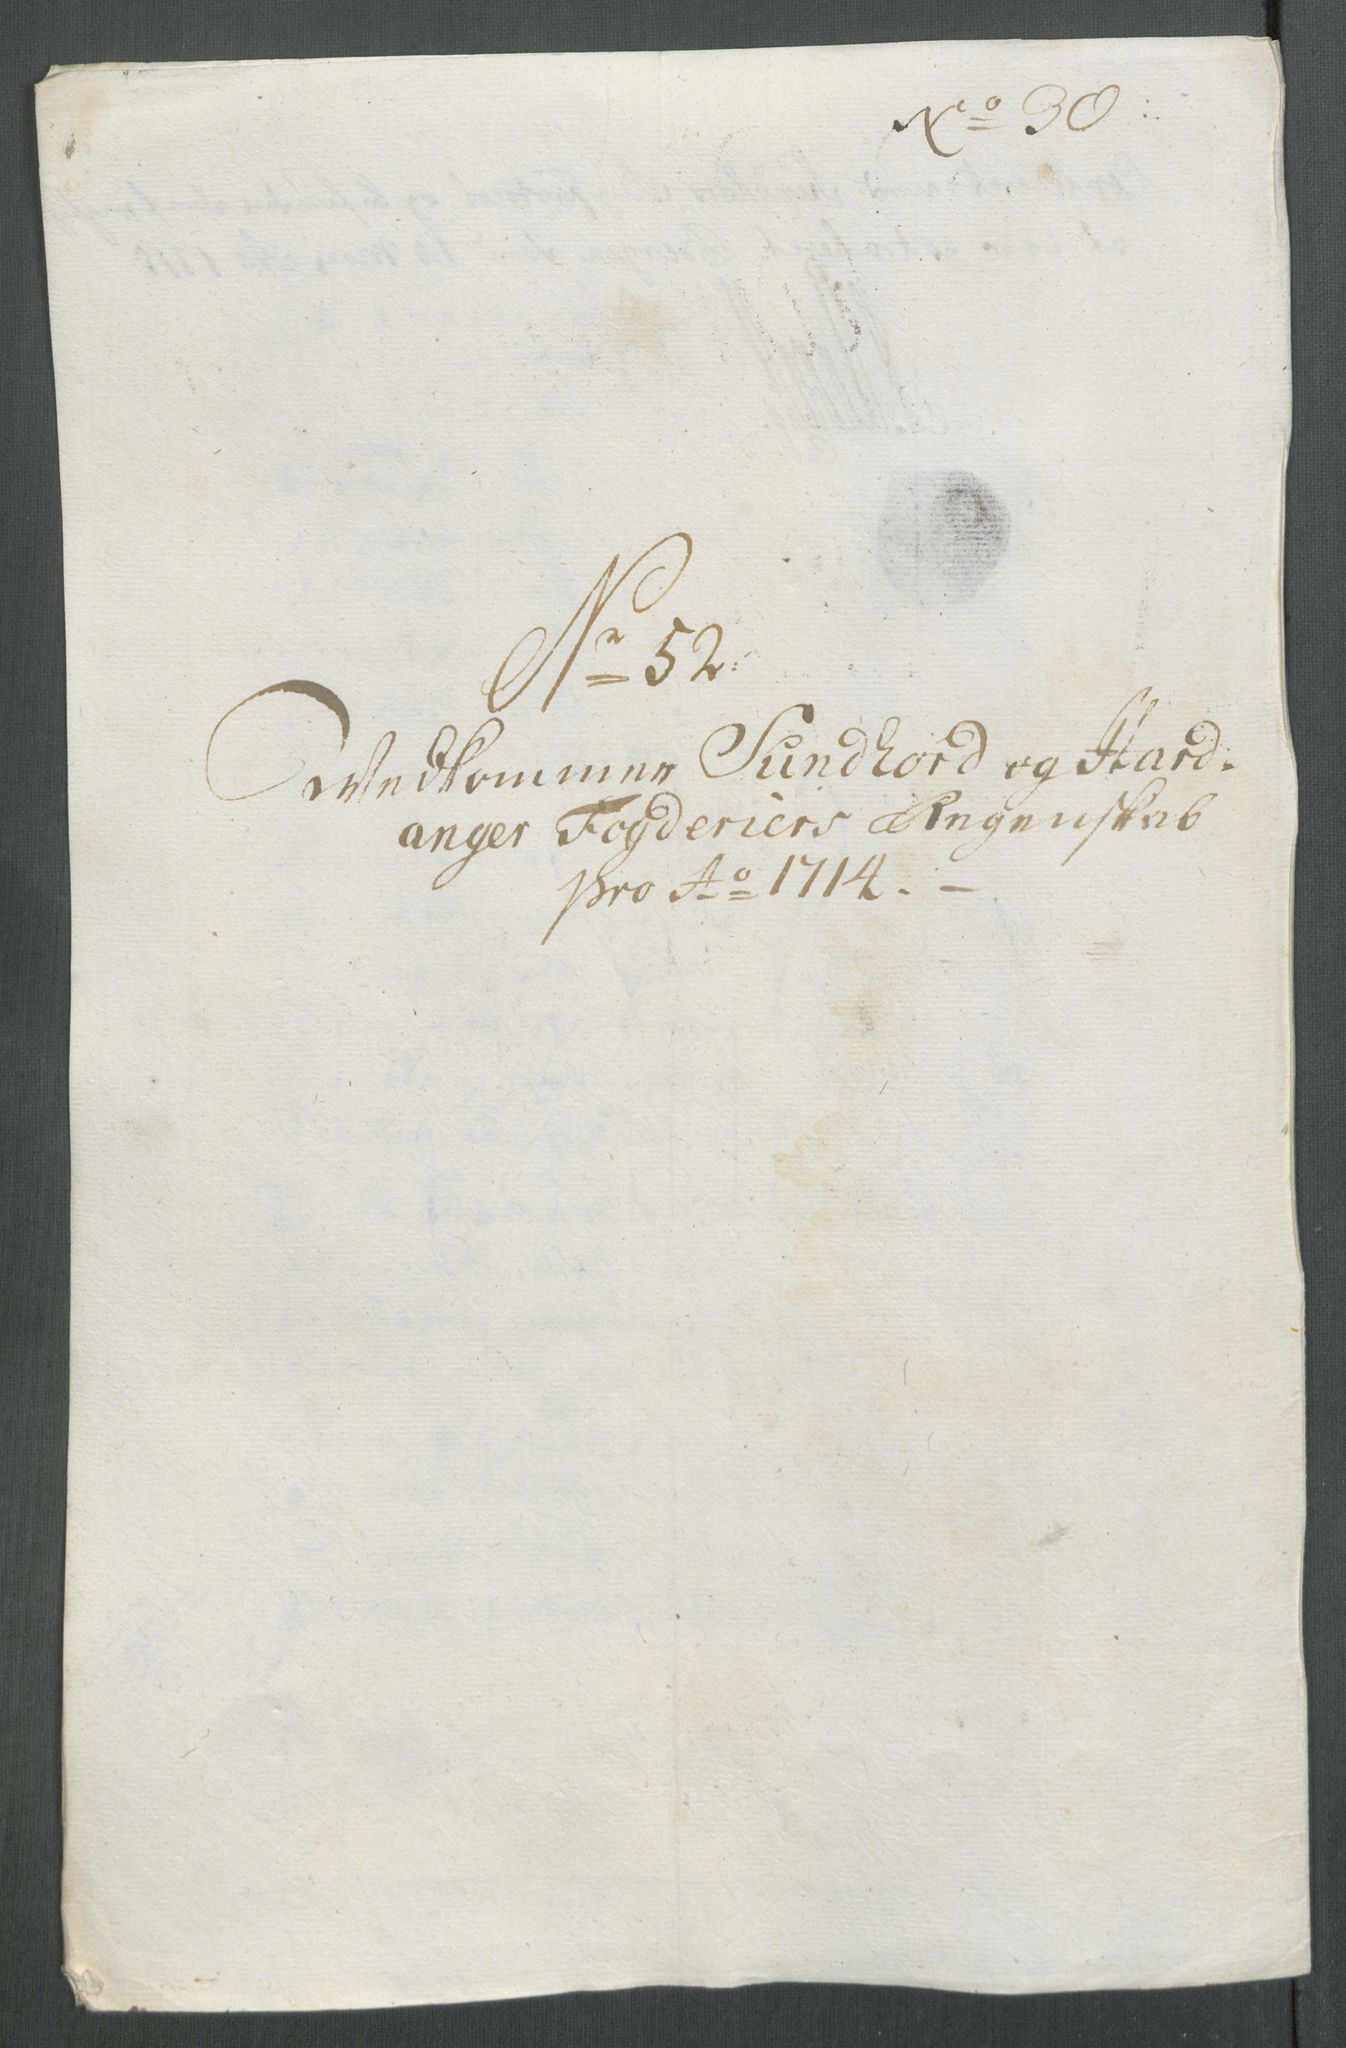 No 30
Nr 52.
Vedkommer Sundhord og Hard-
anger Fogderiers Regenskab
pro Ao 1714. -